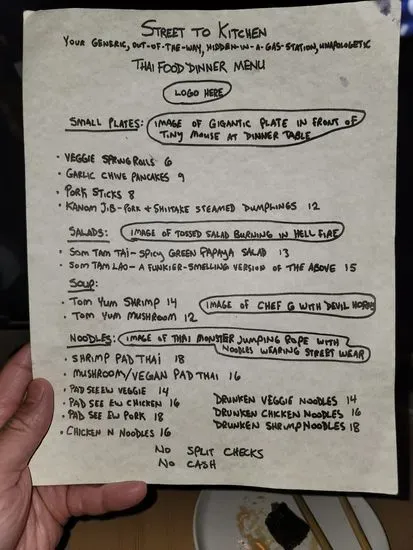 STREET TO KITCHEN
YOUR GENERIC, OUT-OF-THE-WAY, HIDDEN-IN-A-GAS-STATION, UNAPOLOGETIC
THAI FOOD DINNER MENU
LOGO HERE
SMALL PLATES: IMAGE OF GIGANTIC PLATE IN FRONT OF
TINY MOUSE AT DINNER TABLE
• VEGGIE SPRING ROLLS 6
• GARLIC CHIVE PANCAKES 9
• PORK STICKS 8
• KANOM JIB - PORK + SHIITAKE STEAMED DUMPLINGS 12
SALADS: IMAGE OF TOSSED SALAD BURNING IN HELL FIRE
• SOM TAM TAI - SPICY GREEN PAPAYA SALAD 13
• SOM TAM LAO - A FUNKIER-SMELLING VERSION OF THE ABOVE 15
SOUP:
• TOM YUM SHRIMP 14 IMAGE OF CHEF G WITH DEVIL HORNS
• TOM YUM MUSHROOM 12
NOODLES: IMAGE OF THAI MONSTER JUMPING ROPE WITH
NOODLES WEARING STREET WEAR
• SHRIMP PAD THAI 18
• MUSHROOM/VEGAN PAD THAI 16
• PAD SEE EW VEGGIE 14 DRUNKEN VEGGIE NOODLES 14
• PAD SEE EW CHICKEN 16 DRUNKEN CHICKEN NOODLES 16
• PAD SEE EW PORK 18 DRUNKEN SHRIMP NOODLES 18
• CHICKEN N NOODLES 16
NO SPLIT CHECKS
NO CASH